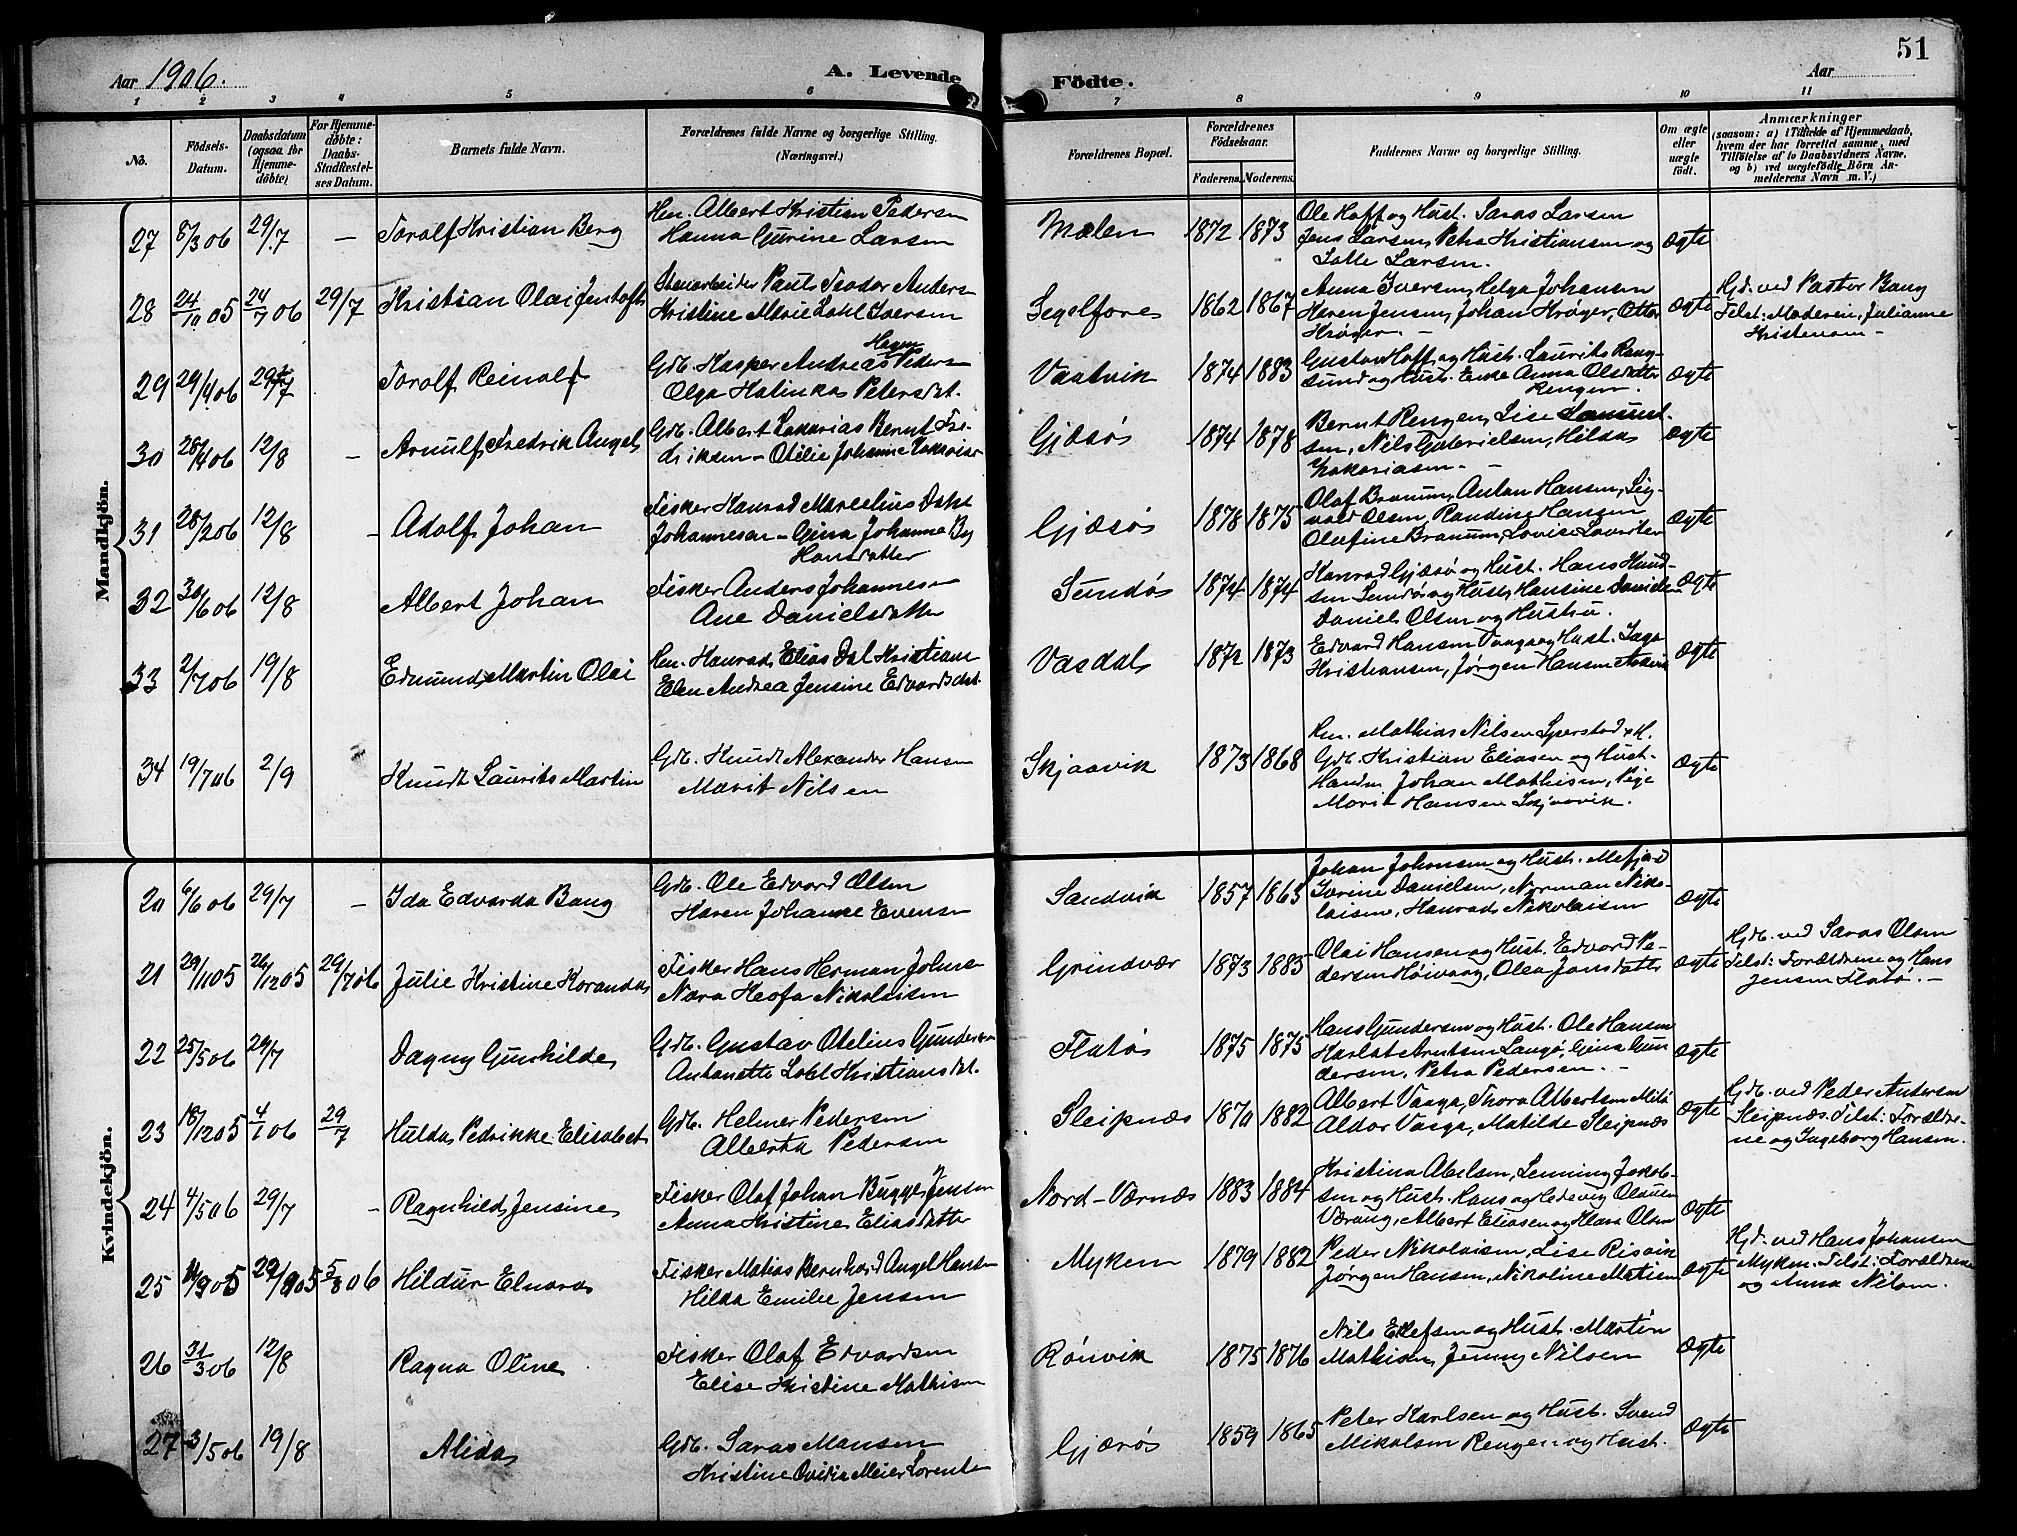 51
Aar 1906.
A. Levende Födte.
Aar
1 2 3 4 5 6 7 8 9 10 11
No.
Födsels-Datum.
Daabsdatum (ogsaa for Hjemme-döbte)
For Hjemme-döbte: Daabs-Stadfæstel-ses Datum.
Barnets fulde Navn.
Forældrenes fulde Navne og borgerlige Stilling. (Næringsvei.)
Forældrenes Bopæl.
Forældrenes Födselsaar.
Faderens. Moderens.
Faddernes Navne og borgerlige Stilling.
Om ægte eller uægte födt.
Anmærkninger
(saasom: a) i Tilfælde af Hjemmedaab,
hvem der har forrettet samme, med
Tilföielse af to Daabsvidners Navne,
og b) ved uægtefödte Börn An-
melderens Navn m. V.)
Mandkjön.
27 8/3 06 29/7 — Toralf Kristian Berg
Hm. Albert Kristian Pedersen
Hanna Gurine Larsen
Mælen 1872 1873
Ole Hoff og Hust. Saras Larsen
Jens Larsen, Petra Kristiansen og
Lotte Larsen.
Ægte
28 24/10 05 24/7 06 29/7 Kristian Olai Jentoft
Stenarbeider Paul Teodor Anders
Kristine Marie Lohl Iversen
Segelfore 1862 1867
Anna Iversen, Helga Johansen
Karen Jensen, Johan Krøger, Otter
Krøger —
Ægte
Hjd. ved Pastor Bang
Tilst: Moderen, Julianne
Kristensen —
29 29/4 06 29/7 Toralf Reinolf
Gdb. Kasper Andreas Hagen Peders
Olga Halinka Petersdat.
Vaatvik 1874 1883
Gustav Hoff og Hust. Laurits Rang-
sund og Hust. Enke Anna Olsdatter
Rengen
Ægte
30 28/4 06 12/8 — Arnulf Fredrik Angel
Gdb. Albert Zakarias Bernt Fre-
driksen — Otilie Johanne Zakarias
Gjæsø 1874 1878
Bernt Rengen, Lise Samuel-
sen, Nils Gabrielsen, Hilda
Zakariasen. —
Ægte
31 28/2 06 12/8 — Adolf Johan
Fisker Konrad Marcelius Dahl
Johannesen — Gina Johanna By
Hansdatter
Gjæsø 1878 1875
Olaf Branum, Anton Hansen, Sig-
vald Olsen, Randine Hansen
Olufine Branum, Lovise Lauritsen
Ægte
32 30/6 06 12/8 Albert Johan
Fisker Anders Johannesen
Ane Danielsdatter
Sundø 1874 1874
Konrad Gjæsø og Hust. Hans Knud-
sen Sundø og Hust, Hansine Danielsen
Daniel Olsen og Hustru.
Ægte
33 2/7 06 19/8 Edmund Martin Olai
Hm. Konrad Elias Dal Kristians
Elen Andrea Jensine Edvardsdat.
Vasdal 1872 1873
Edvard Hansen Vaaga og Hust. Inga
Kristiansen, Jørgen Hansen
Ægte
34 19/7 06 2/9 Knudt Laurits Martin
Gdb. Knudt Alexander Hansen
Marit Nilsen
Skjaavik 1873 1868
Hm. Mathias Nilsen Sperstad & H.
Gdb. Kristian Eliasen og Hust.
Handm Johan Mathisen, Pige
Marit Hansen Skjaavik.
Ægte
Kvindekjön.
20 6/6 06 29/7 — Ida Edvarda Bang
Gdb. Ole Edvard Olsen
Karen Johanne Evensen
Sandvik 1857 1863
Johan Johansen og Hust. Mefjord
Iverine Danielsen, Norman Niko-
laisen, Konrad Nikolaisen
Ægte
21 29/11 05 26/12 05 29/7 06 Julie Kristine Koranda
Fisker Hans Herman Johns
Nora Heofa Nikolaisen
Grindvær 1873 1885
Olai Hansen og Hust. Edvard Pe-
dersen Høivaag, Olea Jonsdatter
Ægte
Hjd. ved Saras Olsen
Tilst: Forældrene og Hans
Jensen Flatø. —
22 25/5 06 29/7 Dagny Gunhilde
Gdb. Gustav Otelius Gundersen
Antonette Lohl Kristiansdat.
Flatø 1875 1875
Hans Gundersen og Hust. Ole Hansen
Harlat Arntsen Langø, Gina Gun
dersen, Petra Pedersen. —
Ægte
23 18/12 05 4/1 06 29/7 Hulda Pedrikke Elisabet
Gdb. Helmer Pedersen
Alberta Pedersen
Sleipnæs 1870 1882
Albert Vaaga, Thora Albertsen Milø
Aldor Vaaga, Matilde Sleipnæs
Ægte
Hjd. ved Peder Andersen
Sleipnæs. Tilst: Forældre-
ne og Ingeborg Hansen.
24 4/5 06 29/7 — Ragnhild Jensine
Fisker Olaf Johan Bugge Jensen
Anna Kristine Eliasdatter
Nord-Værnæs 1883 1884
Kristina Abelsen, Lenning Jakob-
sen og Hust. Hans og Hedevig Olausen
Værang, Albert Eliasen og Klara Olsen
Ægte
25 11/9 05 29/9 05 5/8 06 Hildur Elnora
Fisker Matias Bernhard Angel Hansen
Hilda Emilie Jensen
Myken 1879 1882
Peder Nikolaisen, Lise Risvik
Jørgen Hansen, Nikoline Matisen
Ægte
Hjd. ved Hans Johansen
Myken. Tilst: Forældrene
og Anna Nilsen.
26 31/3 06 12/8 Ragna Oline
Fisker Olaf Edvardsen
Elise Kristine Mathisen
Rønvik 1875 1876
Nils Ellefsen og Hust. Martin
Mathisen, Jenny Nilsen
Ægte
27 3/5 06 19/8 Alida
Gdb. Saras Monsen
Kristine Ovidia Meier Lorents
Gjærø 1859 1865
Peter Karlsen og Hust. Svend
Mikalsen Rengen og Hust.
Ægte